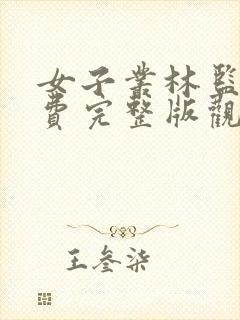 女子業林監
費完整版觀
王叁柒